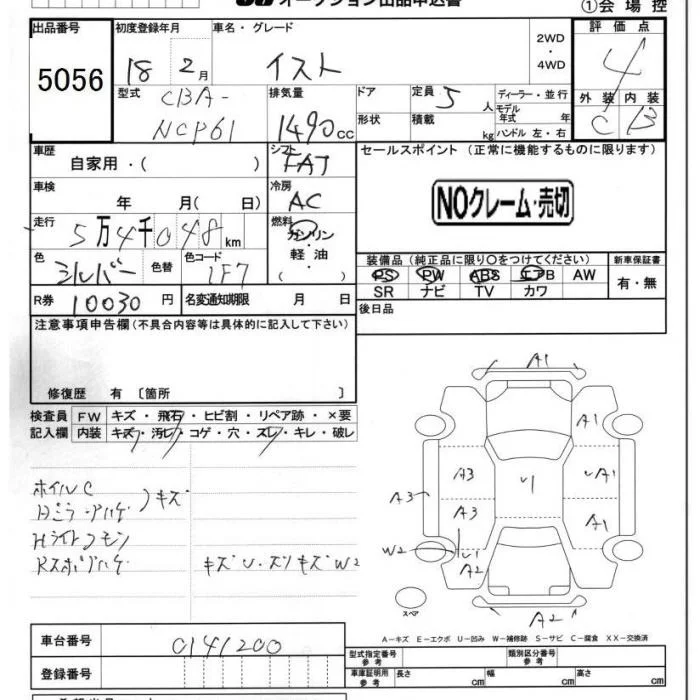 オークション出品申込書
①会場控
出品番号 初度登録年月 車名・グレード 2WD ・ 4WD 評価点
5056 18 2月 イスト 4
型式 CBA-NCP61 排気量 1490cc ドア 形状 定員 5人 積載 kg ディーラー・並行 モデル年式 年 ハンドル 左・右 外装 C 内装 B
車歴 自家用・( ) シフト FAT セールスポイント(正常に機能するものに限ります)
車検 年 月( 日) 冷房 AC NOクレーム・売切
走行 5万4千048km 燃料 ガソリン・軽油・( )
色 シルバー 色替 色コード 1F7 装備品(純正品に限り○をつけてください) 新車保証書
PS PW ABS エアB AW 有・無
SR ナビ TV カワ
R券 10030円 名変通知期限 月 日 後日品
注意事項申告欄(不具合内容等は具体的に記入して下さい)
修復歴 有〔箇所 〕
検査員記入欄 FW キズ・飛石・ヒビ割・リペア跡・×要
内装 キズ・汚レ・コゲ・穴・スレ・キレ・破レ
ホイルC
Dミラー・Aハゲ キズ
Hライトクモリ
Rスポイラハゲ キズU・スリキズW2
A1
A1
A3 U1 UA1
A3 A3 A1
W2 U1 A2
A2
スペア
A-キズ E-エクボ U-凹み W-補修跡 S-サビ C-腐食 XX-交換済
車台番号 0141200
登録番号
型式指定番号 参考 類別区分番号 参考
車庫証明用 参考 長さ cm 幅 cm 高さ cm